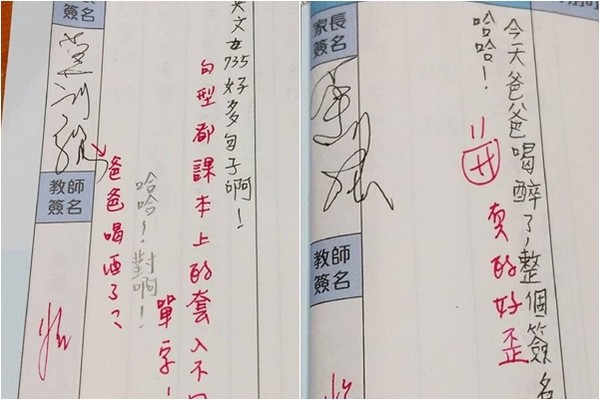 英文
735好多句子啊!
句型都課本上的套入不
單字!
哈哈~對啊!
爸爸喝酒了?
簽名
教師
簽名
今天爸爸喝醉了,整個簽名
哈哈!
真的好歪
家長
簽名
教師
簽名